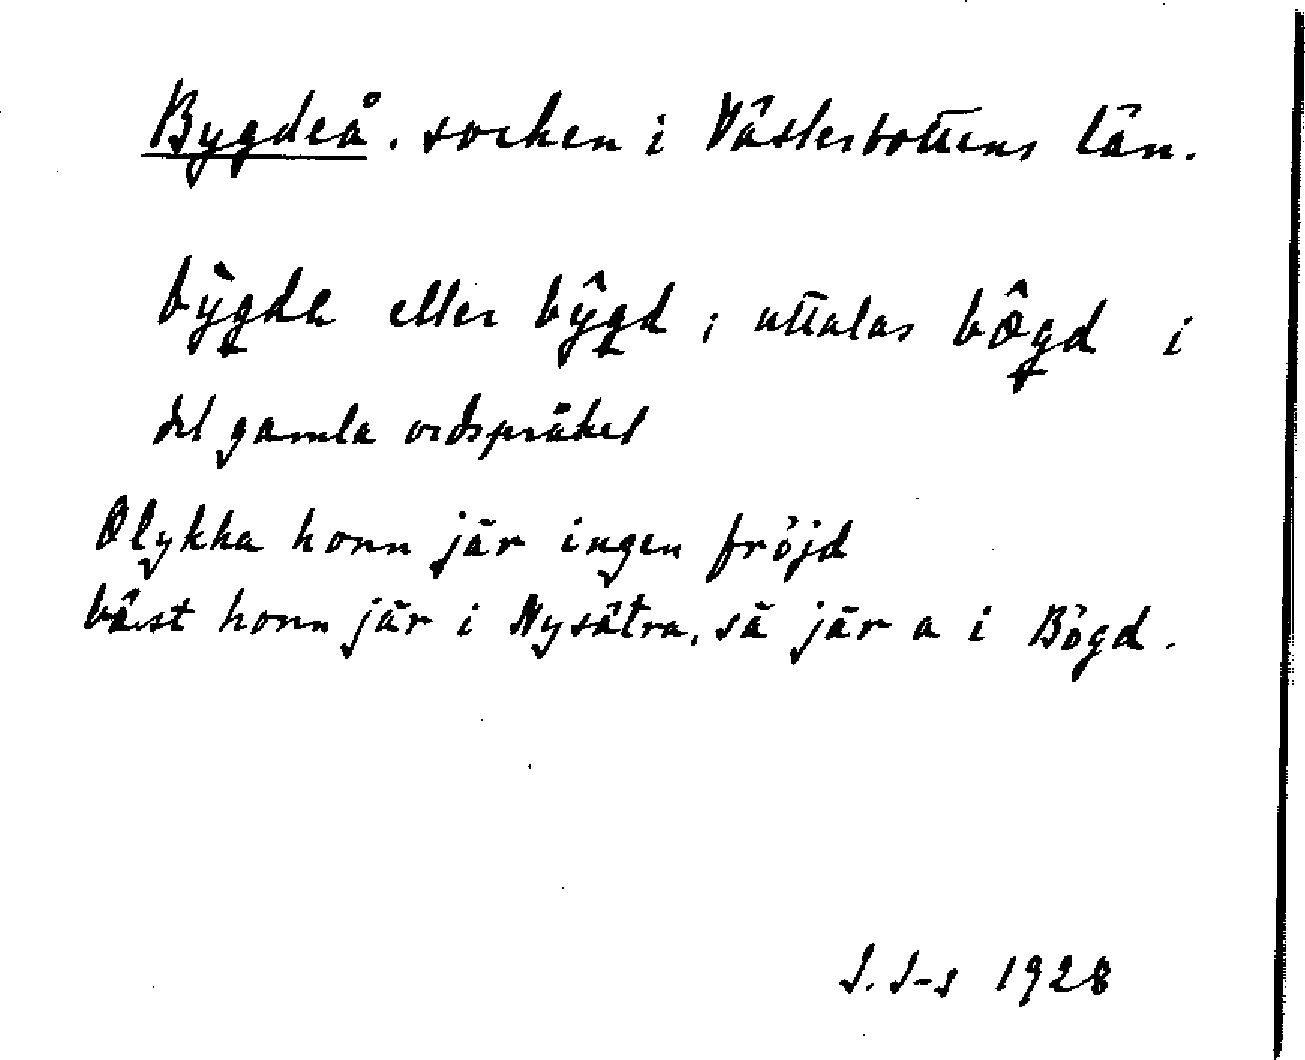 Bygdeå. socken i Västerbottens län.
bỳgde eller bŷgd ; uttalas bôgd i
det gamla ordspråket
Olykka honn jär ingen fröjd
bäst honn jär i Nysätra, så jär a i Bögd.
J. J-s 1928